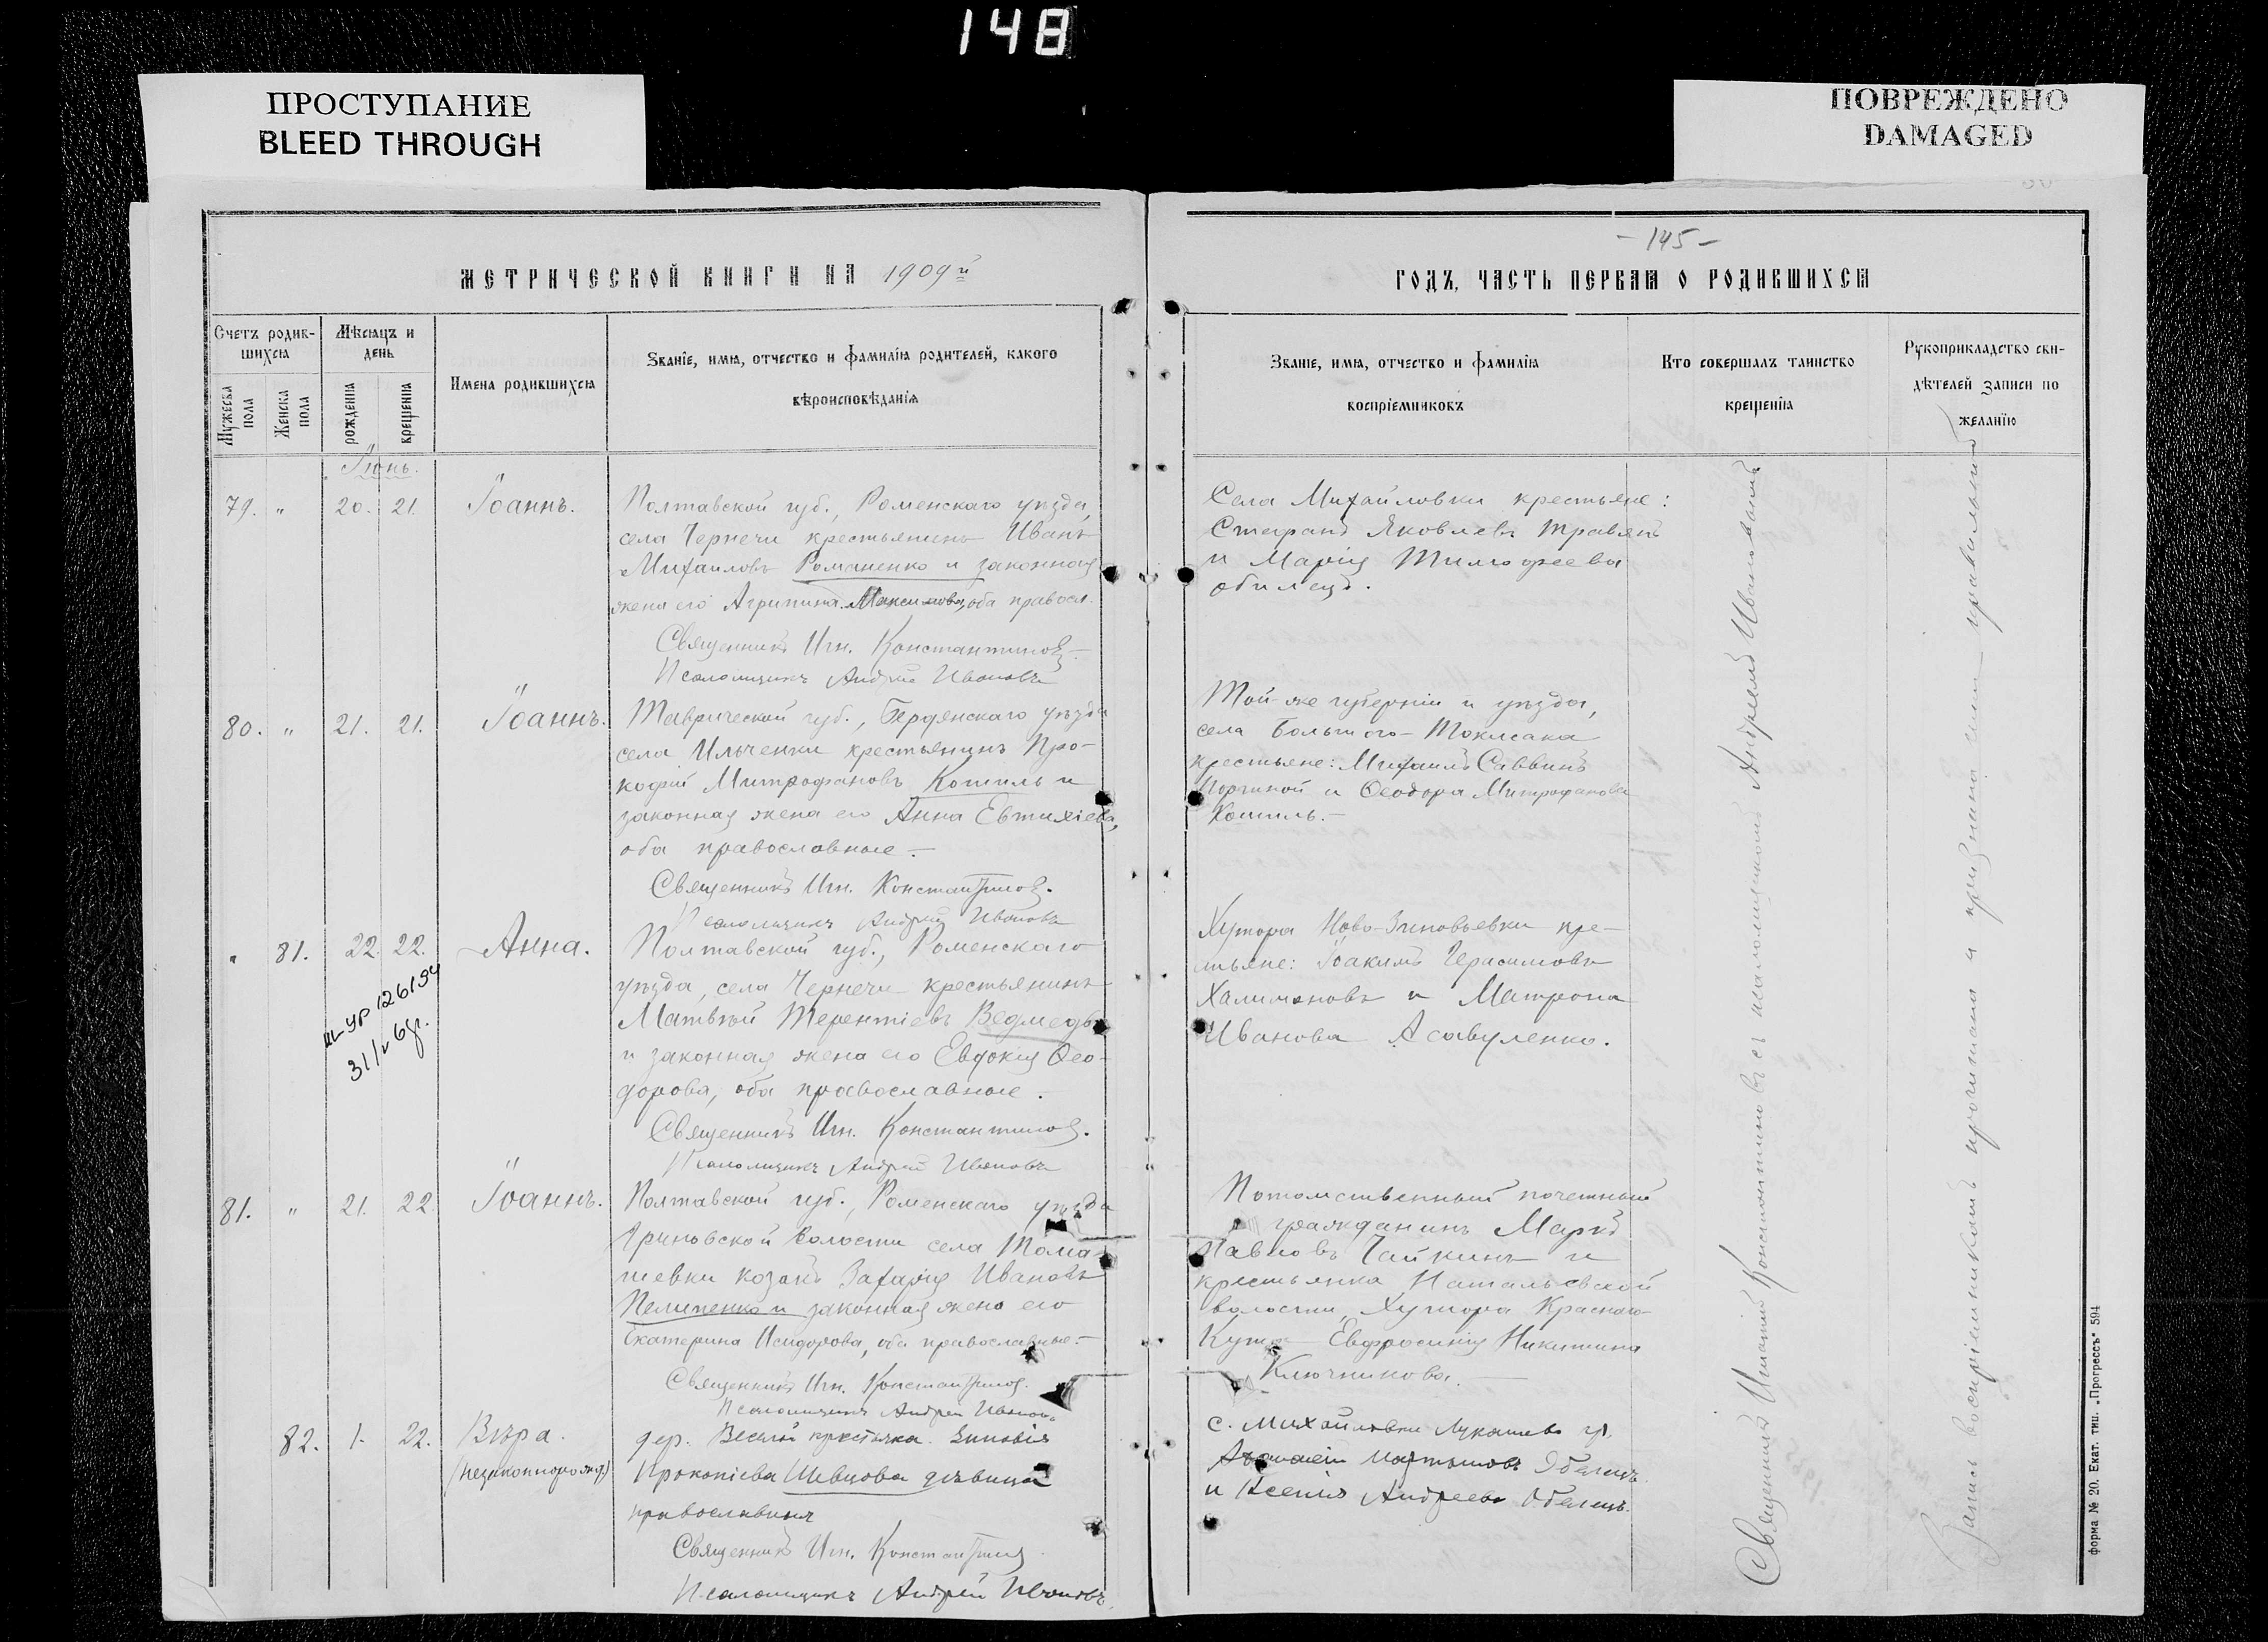 148
ПРОСТУПАНИЕ
BLEED THROUGH
ПОВРЕЖДЕНО
DAMAGED
МЕТРИЧЕСКОЙ КНИГИ НА 1909й
Счетъ родив-
шихся
Мѣсяцъ и
день
Мужеска
пола
Женска
пола
рожденія
крещенія
Имена родившихся
Званіе, имя, отчество и фамилія родителей, какого
вѣроисповѣданія
Іюнь.
79. " 20. 21. Іоаннъ.
Полтавской губ., Роменскаго уѣзда,
села Чернечи крестьянинъ Иванъ
Михаиловъ Романенко и законная
жена его Агрипина Максимова, оба правосл.
Священникъ Игн. Константиновъ
Псаломщикъ Андрей Ивановъ
80. " 21. 21. Іоаннъ.
Таврической губ., Бердянскаго уѣзда
села Ильченки крестьянинъ Про-
кофій Митрофановъ Кошиль и
законная жена его Анна Евтихіева,
оба православные.—
Священникъ Игн. Константиновъ.
Псаломщикъ Андрей Ивановъ
" 81. 22. 22. Анна.
31/V 6
Полтавской губ., Роменскаго
уѣзда, села Чернечи крестьянинъ
Матвѣй Терентіевъ Ведмедь
и законная жена его Евдокія Ѳео-
дорова, оба православные.
Священникъ Игн. Константиновъ.
Псаломщикъ Андрей Ивановъ
81. " 21. 22. Іоаннъ.
Полтавской губ., Роменскаго уѣзда
волости села Тома-
шевки козакъ Захарія Ивановъ
Пелипенко и законная жена его
Екатерина Исидорова, оба православные.—
Священникъ Игн. Константиновъ.
Псаломщикъ Андрей Ивановъ
82. 1. 22. Вѣра.
(незаконнорожд.)
дер. Веселой крестьянка Зиновія
Прокопіева Шевцова дѣвица
православная
Священникъ Игн. Константиновъ
Псаломщикъ Андрей Ивановъ
-145-
ГОДЪ, ЧАСТЬ ПЕРВАЯ О РОДИВШИХСЯ
Званіе, имя, отчество и фамилія
воспріемниковъ
Кто совершалъ таинство
крещенія
Рукоприкладство сви-
дѣтелей записи по
желанію
Села Михайловки крестьяне:
Стефанъ Яковлевъ Травянъ
и Марія Тимофеева
Обилецъ.
Той-же губерніи и уѣзда,
села Большого-Токмака
крестьяне: Михаилъ Саввинъ
и Ѳеодора Митрофанова
Кошиль.—
Хутора Ново-Зиновьевки кре-
стьяне: Іоакимъ Герасимовъ
Халимоновъ и Матрона
Иванова Асавуленко.
Потомственный почетный
гражданинъ Маркъ
Павловъ Чайкинъ и
крестьянка Натальевской
волости, Хутора Краснаго
Кута Евфросинія Никитина
Ключникова.—
с. Михайловки Лукашево
Аѳанасій Мартыновъ Обелецъ
и Ксенія Андреева Обелецъ.
Священникъ Игнатій Константиновъ съ псаломщикомъ Андреемъ Ивановымъ
Запись воспріемникамъ прочитана и признана ими правильной
форма № 20. Екат. тип. „Прогрессъ" 594